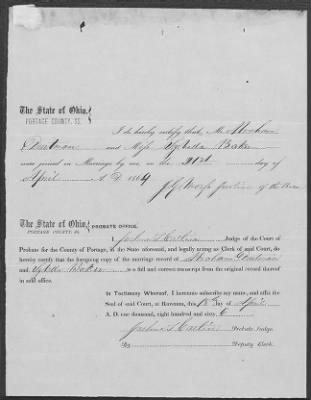 The State of Ohio,
PORTAGE COUNTY, SS.
I do hereby certify that Mr Abraham
Deulman and Miss Baker
were joined in Marriage by me on the 21st day of
April A. D. 1864
J G Morse Justice of the
The State of Ohio,
PORTAGE COUNTY, SS.
PROBATE OFFICE.
I Judge of the Court of
Probate for the County of Portage, in the State aforesaid, and legally acting as Clerk of said Court, do
hereby certify that the foregoing copy of the marriage record of Abraham Deulman
and Baker is a full and correct transcript from the original record thereof
in said office.
In Testimony Whereof, I hereunto subscribe my name, and affix the
Seal of said Court, at Ravenna, this 18th day of April
A. D. one thousand, eight hundred and sixty 6
Probate Judge.
By Deputy Clerk.